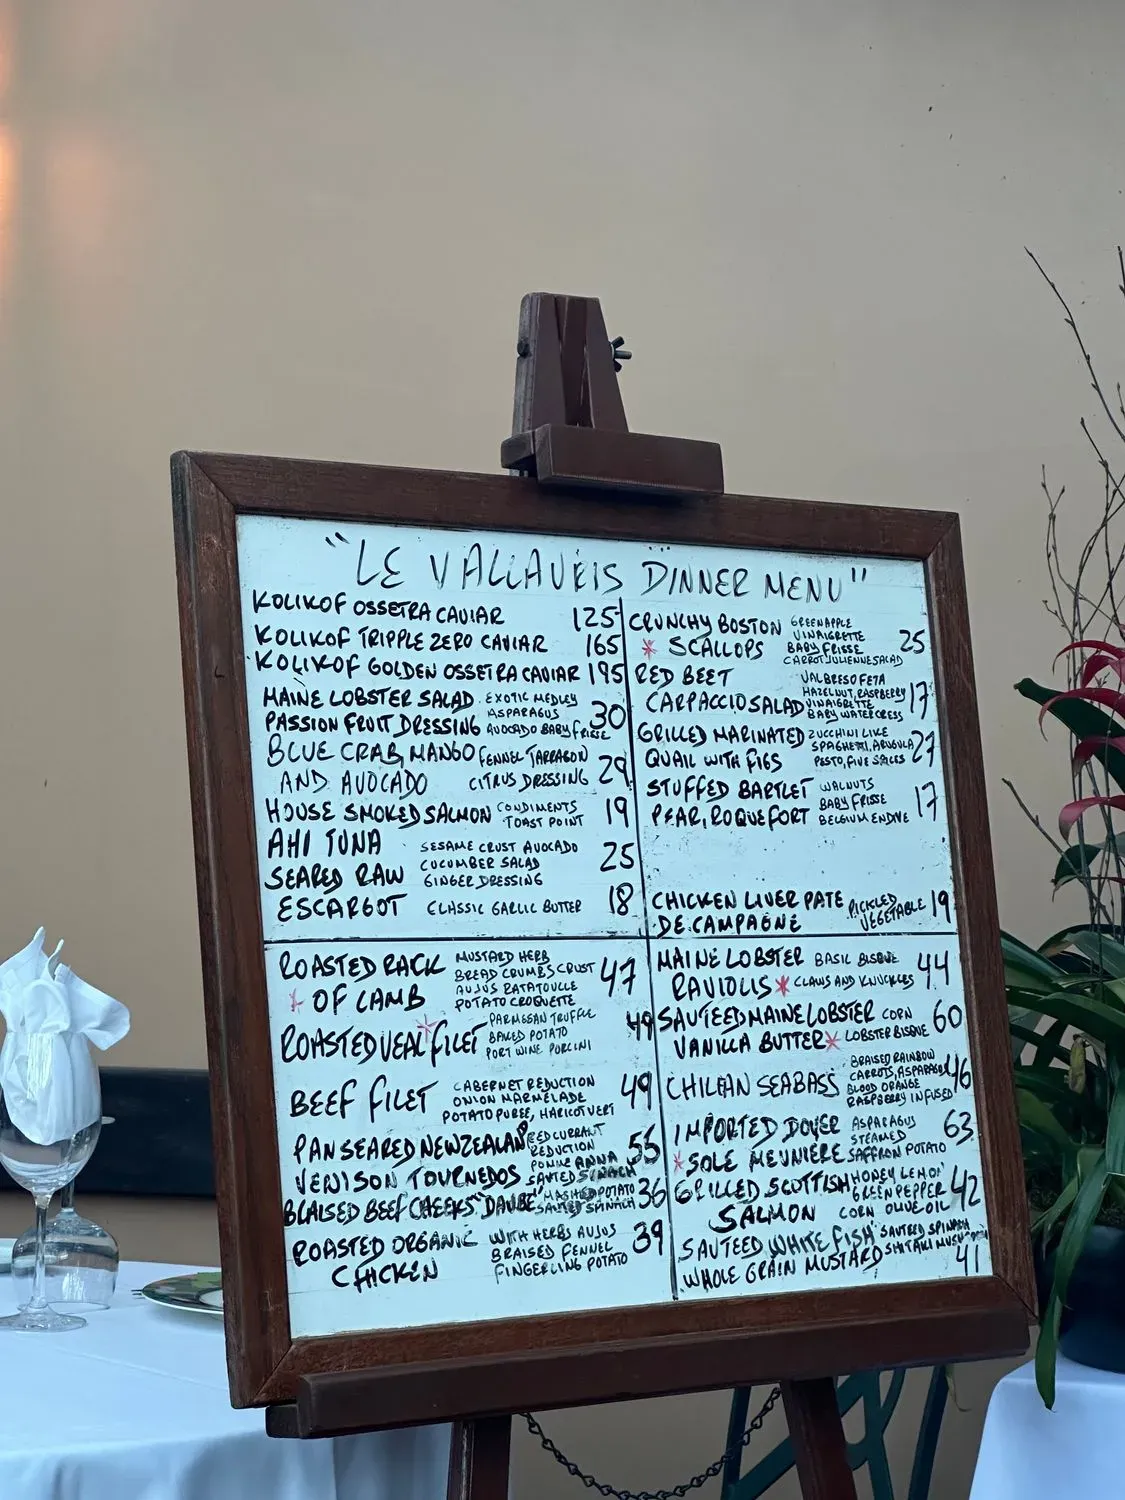 "LE VALLAURIS DINNER MENU"
KOLIKOF OSSETRA CAVIAR 125
KOLIKOF TRIPPLE ZERO CAVIAR 165
KOLIKOF GOLDEN OSSETRA CAVIAR 195
MAINE LOBSTER SALAD EXOTIC MEDLEY
ASPARAGUS
PASSION FRUIT DRESSING AVOCADO BABY FRISSE 30
BLUE CRAB, MANGO FENNEL TARRAGON
AND AVOCADO CITRUS DRESSING 29
HOUSE SMOKED SALMON CONDIMENTS
TOAST POINT 19
AHI TUNA SESAME CRUST AVOCADO
CUCUMBER SALAD 25
SEARED RAW GINGER DRESSING
ESCARGOT CLASSIC GARLIC BUTTER 18
CRUNCHY BOSTON GREEN APPLE
VINAIGRETTE
* SCALLOPS BABY FRISSE 25
CARROT JULIENNE SALAD
RED BEET VALBRESO FETA
HAZELNUT, RASPBERRY
CARPACCIO SALAD VINAIGRETTE 17
BABY WATERCRESS
GRILLED MARINATED ZUCCHINI LIKE
SPAGHETTI, ARUGULA 27
QUAIL WITH FIGS PESTO, FIVE SPICES
STUFFED BARTLET WALNUTS
BABY FRISSE 17
PEAR, ROQUEFORT BELGIUM ENDIVE
CHICKEN LIVER PATE PICKLED
DE CAMPAGNE VEGETABLE 19
ROASTED RACK MUSTARD HERB
BREAD CRUMBS CRUST 47
* OF LAMB AUJUS RATATOUILLE
POTATO CROQUETTE
* PARMESAN TRUFFLE
ROASTED VEAL FILET BAKED POTATO 49
PORT WINE PORCINI
BEEF FILET CABERNET REDUCTION
ONION MARMELADE 49
POTATO PUREE, HARICOT VERT
PAN SEARED NEW ZEALAND RED CURRANT
REDUCTION 55
VENISON TOURNEDOS POMME ANNA
SAUTED SPINACH
BLAISED BEEF CHEEKS "DAUBE" MASHED POTATO 36
SAUTED SPINACH
ROASTED ORGANIC WITH HERBS AUJUS 39
BRAISED FENNEL
CHICKEN FINGERLING POTATO
MAINE LOBSTER BASIL BISQUE 44
RAVIOLIS * CLAWS AND KNUCKLES
SAUTEED MAINE LOBSTER CORN 60
VANILLA BUTTER * LOBSTER BISQUE
BRAISED RAINBOW
CHILEAN SEABASS CARROTS, ASPARAGUS 46
BLOOD ORANGE
RASPBERRY INFUSED
IMPORTED DOVER ASPARAGUS 63
STEAMED
* SOLE MEUNIERE SAFFRON POTATO
GRILLED SCOTTISH HONEY LEMON
GREEN PEPPER 42
SALMON CORN OLIVE OIL
SAUTEED WHITE FISH SAUTEED SPINACH
SHITAKI MUSHROOM
WHOLE GRAIN MUSTARD 41